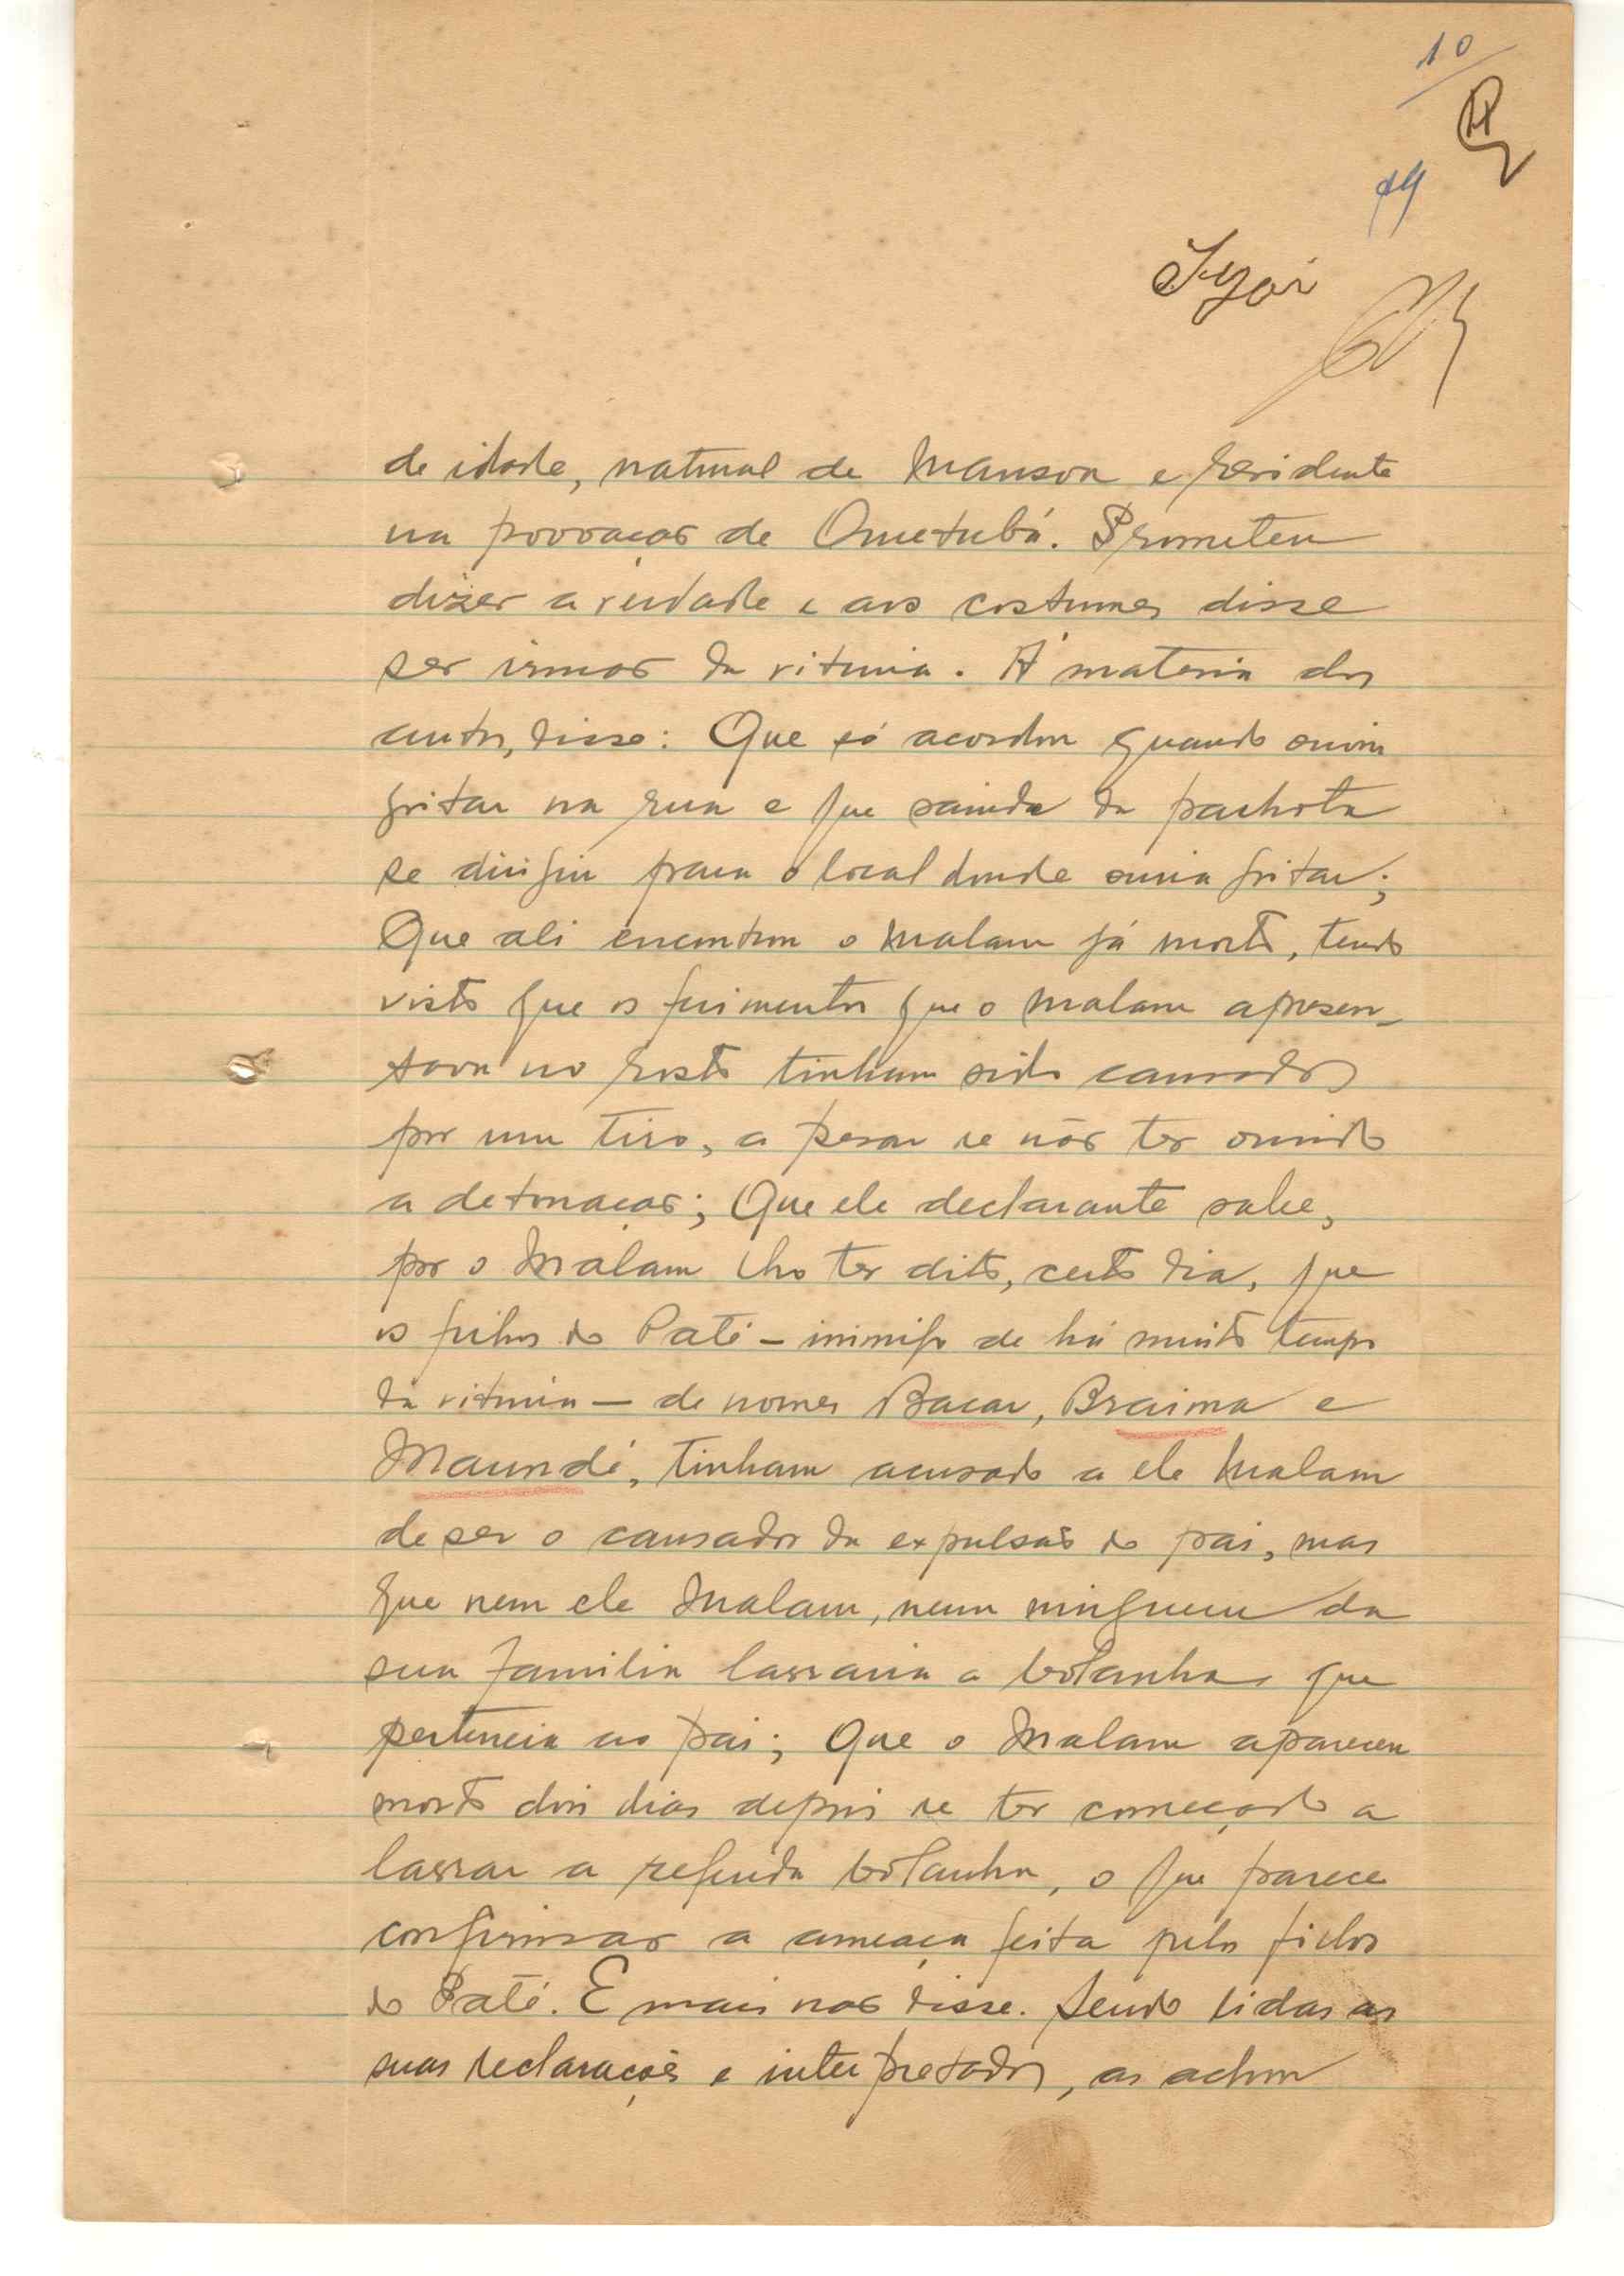 10
de idade, natural de Mansoa e residente
na povoação de Ometubá. Prometeu
dizer a verdade e aos costumes disse
ser irmão da vitima. Á materia dos
autos, disse: Que só acordou quando ouviu
gritar na rua e que saindo da palhota
se dirigiu para o local donde ouvia gritar;
Que ali encontrou o Malam já morto, tendo
visto que os ferimentos que o Malam apresen-
tava no rosto tinham sido causados
por um tiro, a pesar de não ter ouvido
a detonação; Que ele declarante sabe,
por o Malam lho ter dito, certo dia, que
os filhos do Paté - inimigo de há muito tempo
da vitima - de nomes Bacar, Braima e
Maundé, tinham acusado a ele Malam
de ser o causador da expulsão do pai, mas
que nem ele Malam, nem ninguem da
sua familia lavraria a bolanha que
pertencia ao pai; Que o Malam apareceu
morto dois dias depois de ter começado a
lavrar a referida bolanha, o que parece
confirmar a ameaça feita pelos filhos
do Paté. E mais não disse. Sendo lidas as
suas declarações e interpretadas, as achou